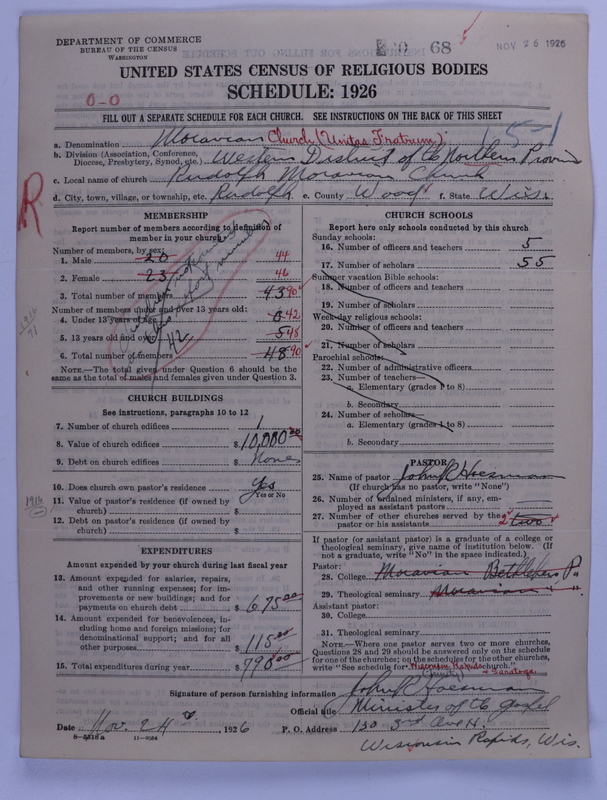 DEPARTMENT OF COMMERCE
BUREAU OF THE CENSUS
WASHINGTON
68
NOV 26 1926
UNITED STATES CENSUS OF RELIGIOUS BODIES
SCHEDULE: 1926
0-0
1-5-1
FILL OUT A SEPARATE SCHEDULE FOR EACH CHURCH. SEE INSTRUCTIONS ON THE BACK OF THIS SHEET
a. Denomination Moravian Church (Unitas Fratrum)
b. Division (Association, Conference, Diocese, Presbytery, Synod, etc.) Western District of the Northern Province
c. Local name of church Rudolph Moravian Church
d. City, town, village, or township, etc. Rudolph e. County Wood f. State Wis.
R
MEMBERSHIP
Report number of members according to definition of
member in your church
Number of members, by sex:
1. Male 20 44
2. Female 23 46
3. Total number of members 43 90
Number of members under and over 13 years old:
4. Under 13 years old 6 42
5. 13 years old and over 5 48
6. Total number of members 48 90
42
NOTE.—The total given under Question 6 should be the
same as the total of males and females given under Question 3.
CHURCH BUILDINGS
See instructions, paragraphs 10 to 12
7. Number of church edifices 1
8. Value of church edifices $ 10,000 00
9. Debt on church edifices $ None
10. Does church own pastor's residence Yes
Yes or No
1916
11. Value of pastor's residence (if owned by
church) $
12. Debt on pastor's residence (if owned by
church) $
EXPENDITURES
Amount expended by your church during last fiscal year
13. Amount expended for salaries, repairs,
and other running expenses; for im-
provements or new buildings; and for
payments on church debt $ 675 00
14. Amount expended for benevolences, in-
cluding home and foreign missions; for
denominational support; and for all
other purposes $ 115 00
15. Total expenditures during year $ 790 00
CHURCH SCHOOLS
Report here only schools conducted by this church
Sunday schools:
16. Number of officers and teachers 5
17. Number of scholars 55
Summer vacation Bible schools:
18. Number of officers and teachers
19. Number of scholars
Week-day religious schools:
20. Number of officers and teachers
21. Number of scholars
Parochial schools:
22. Number of administrative officers
23. Number of teachers—
a. Elementary (grades 1 to 8)
b. Secondary
24. Number of scholars—
a. Elementary (grades 1 to 8)
b. Secondary
PASTOR
25. Name of pastor John R Hoesman
(If church has no pastor, write "None")
26. Number of ordained ministers, if any, em-
ployed as assistant pastors
27. Number of other churches served by the
pastor or his assistants 2 two
If pastor (or assistant pastor) is a graduate of a college or
theological seminary, give name of institution below. (If
not a graduate, write "No" in the space indicated.)
Pastor:
28. College Moravian Bethlehem P.
29. Theological seminary Moravian " "
Assistant pastor:
30. College
31. Theological seminary
NOTE.—Where one pastor serves two or more churches,
Questions 28 and 29 should be answered only on the schedule
for one of the churches; on the schedules for the other churches,
write "See schedule for Wisconsin Rapids church."
(County) + Saratoga
Signature of person furnishing information John R Hoesman
Official title Minister of the Gospel
Date Nov. 24, 1926 P. O. Address 130 3rd Ave N.
Wisconsin Rapids, Wis.
8-5518 a 11-9084